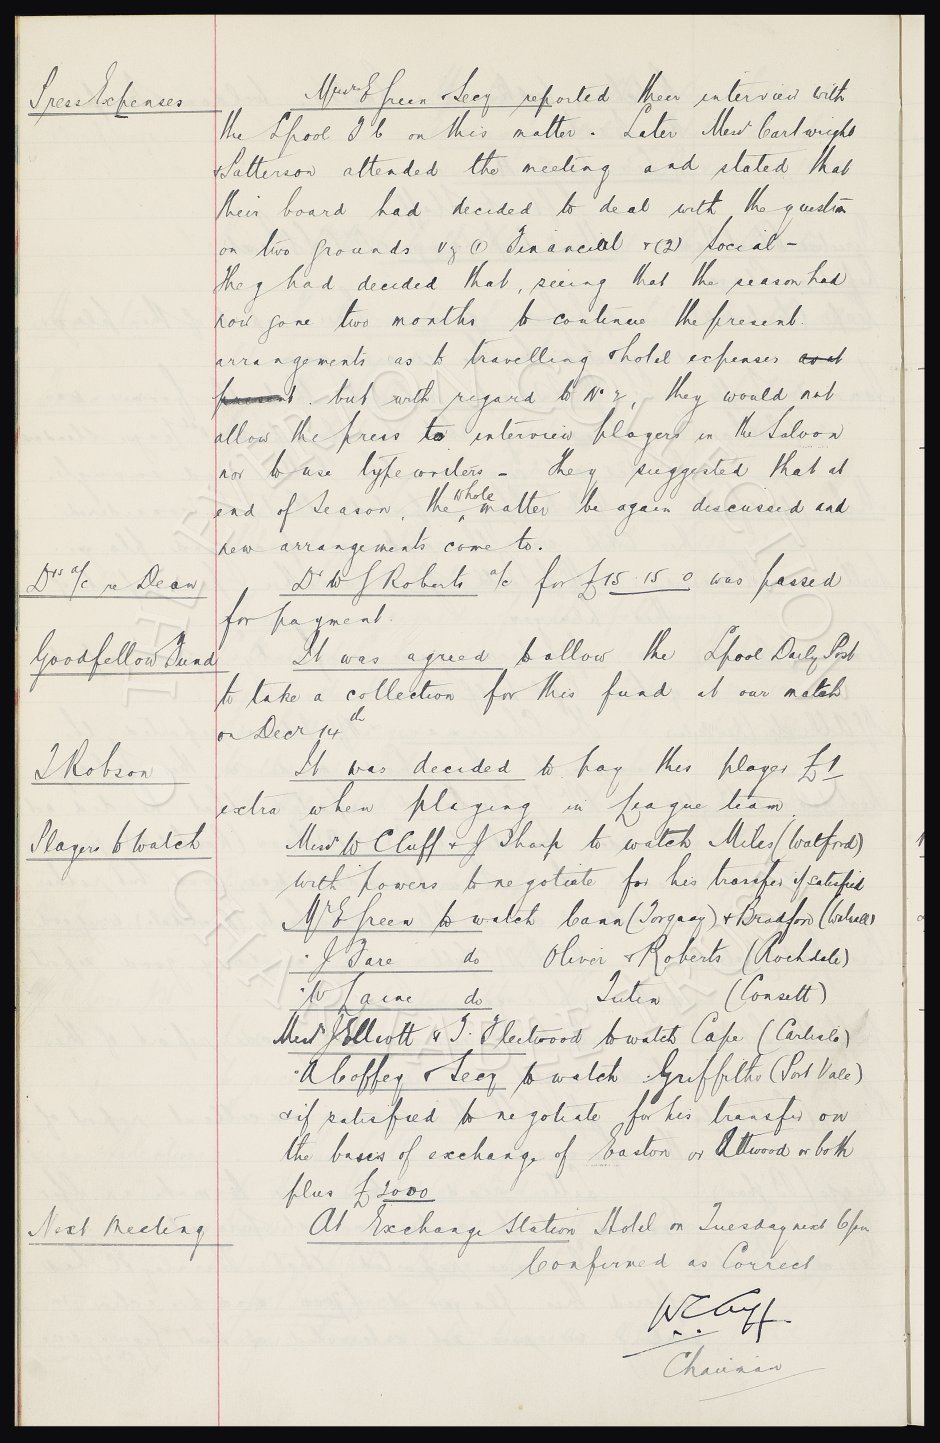 Press Expenses
Messrs E Green & Secy reported their interview with
the Lpool F C on this matter. Later Messrs Cartwright
& Patterson attended the meeting and stated that
their board had decided to deal with the question
on two grounds viz (1) Financial & (2) Social -
They had decided that, seeing that the season had
now gone two months to continue the present
arrangements as to travelling & hotel expenses as at
present. but with regard to No 2, they would not
allow the press to interview players in the Saloon
nor to use typewriters - They suggested that at
end of Season, the whole matter be again discussed and
new arrangements come to.
Drs a/c re Dean
Dr W J Roberts a/c for £15.15.0 was passed
for payment.
Goodfellow Fund
It was agreed to allow the Lpool Daily Post
to take a collection for this fund at our match
on Decr 14th
T Robson
It was decided to pay this player £1
extra when playing in League team
Players to Watch
Messrs W C Cuff & J Sharp to watch Miles (Watford)
with powers to negotiate for his transfer if satisfied
Mr E Green to watch Cann (Torquay) & Bradford (Walsall)
" J Fare do Oliver & Roberts (Rochdale)
" W Laine do Tuten (Consett)
Messrs J Elliott & T. Fleetwood to watch Cape (Carlisle)
" A Coffey & Secy to watch Griffiths (Port Vale)
& if satisfied to negotiate for his transfer on
the basis of exchange of Easton or Attwood or both
plus £2000
Next Meeting
At Exchange Station Hotel on Tuesday next 6pm
Confirmed as Correct
W C Cuff
Chairman